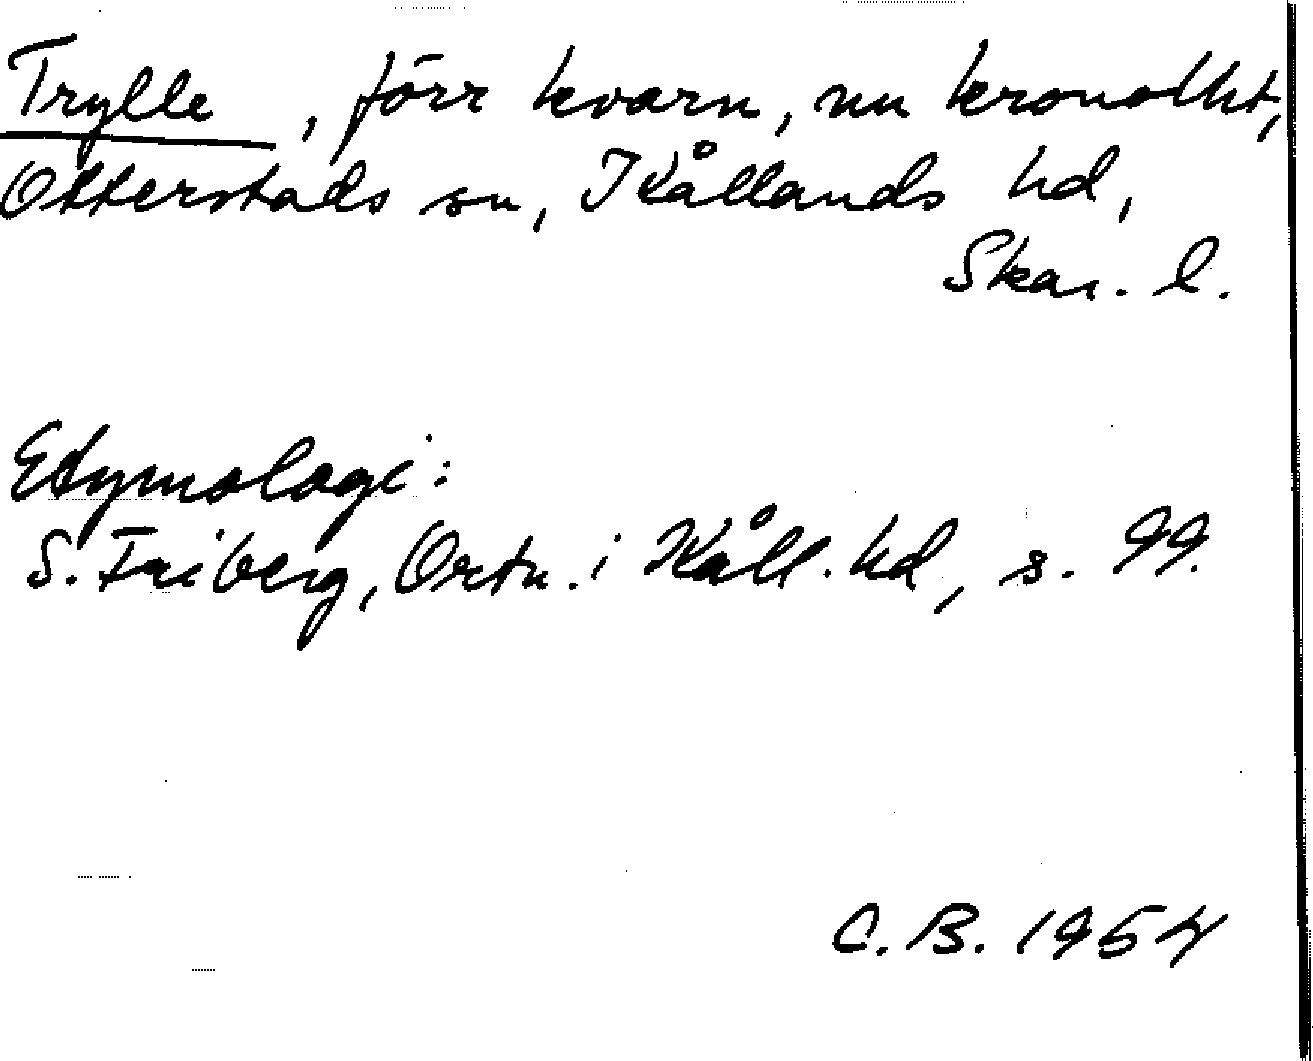 Trylle, förr kvarn, nu kronolht,
Otterstads sn, Kållands hd,
Skar. l.
Etymologi:
S. Friberg, Ortn. i Kåll. hd, s. 99.
C. B. 1954